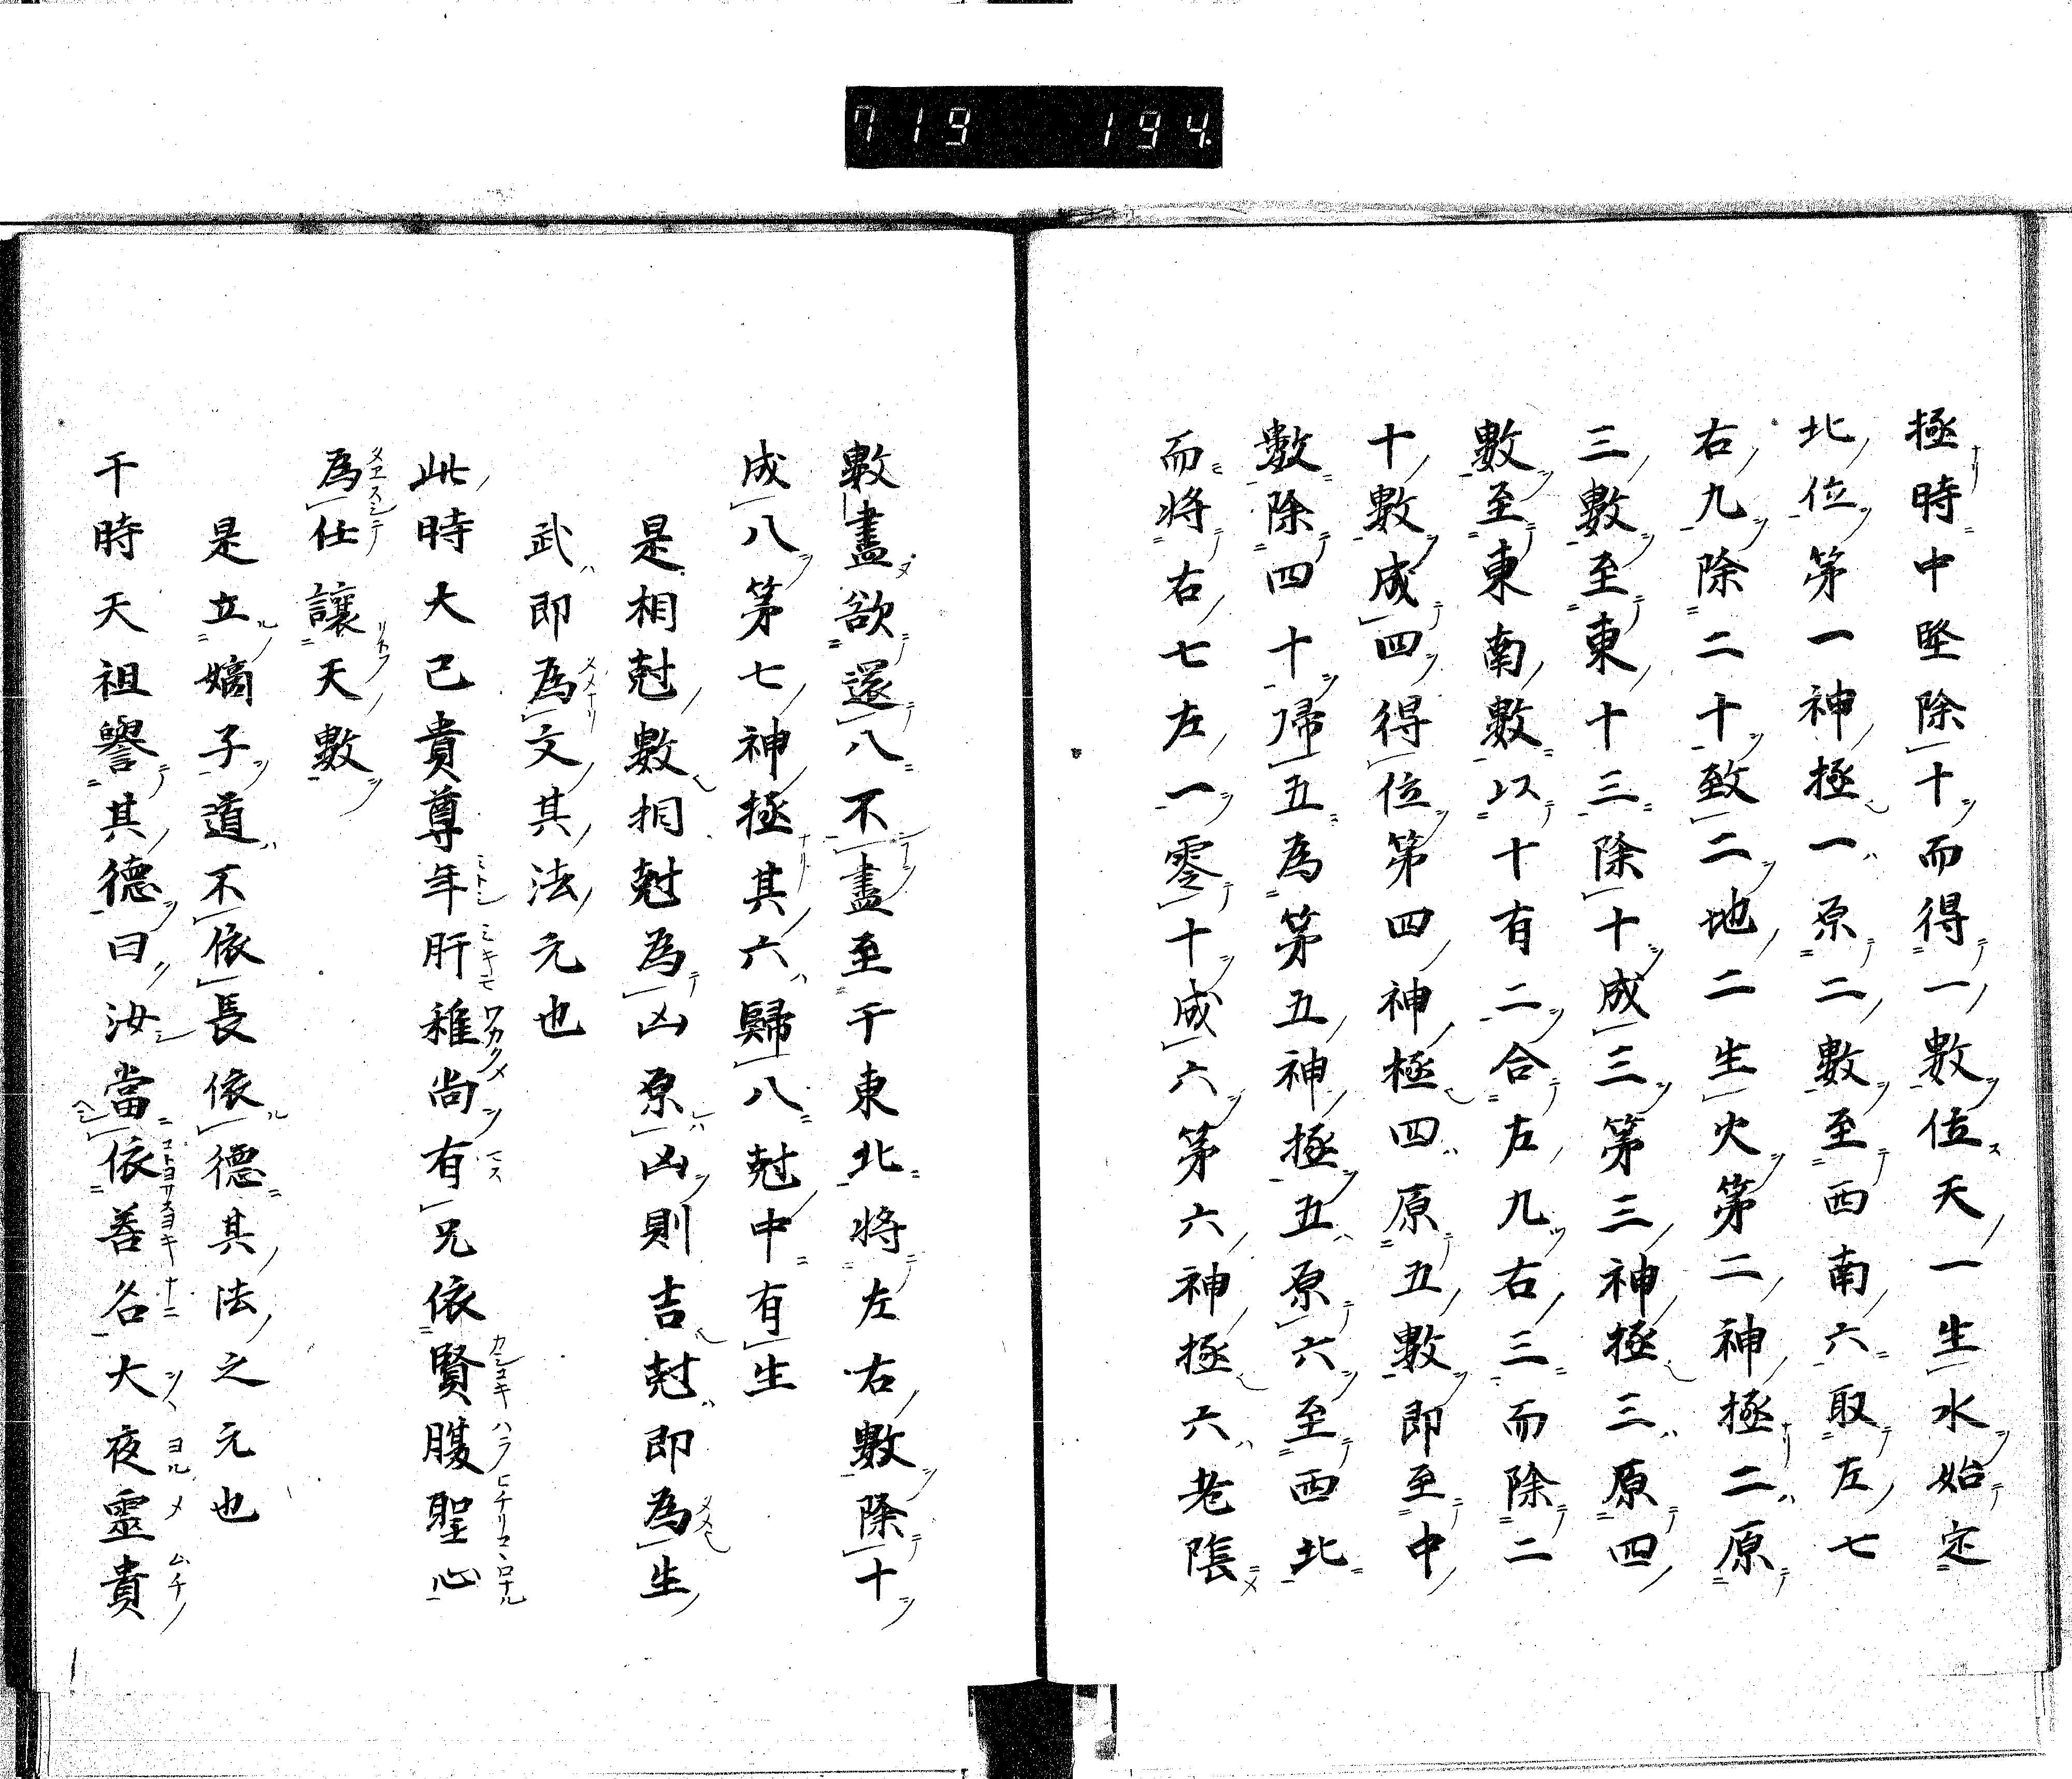 719 194
極時中堅除十而得一數位天一生水始定
北位第一神極一原二數至西南六取左七
右九除二十致二地二生火第二神極二原
三數至東十三除十成三第三神極三原四
數至東南數以十有二合左九右三而除二
十數成四得位第四神極四原五數即至中
數除四十帰五為第五神極五原六至西北
而將右七左一零十成六第六神極六老
數盡欲還八不盡至于東北將左右數除十
成八第七神極其六歸八尅中有生
是相尅數相尅為凶原凶則吉尅即為生
武即為文其法元也
此時大己貴尊年肝稚尚有兄依賢腹聖心
為仕讓天數
是立嫡子道不依長依德其法之元也
于時天祖譽其德曰汝當依善名大夜靈貴